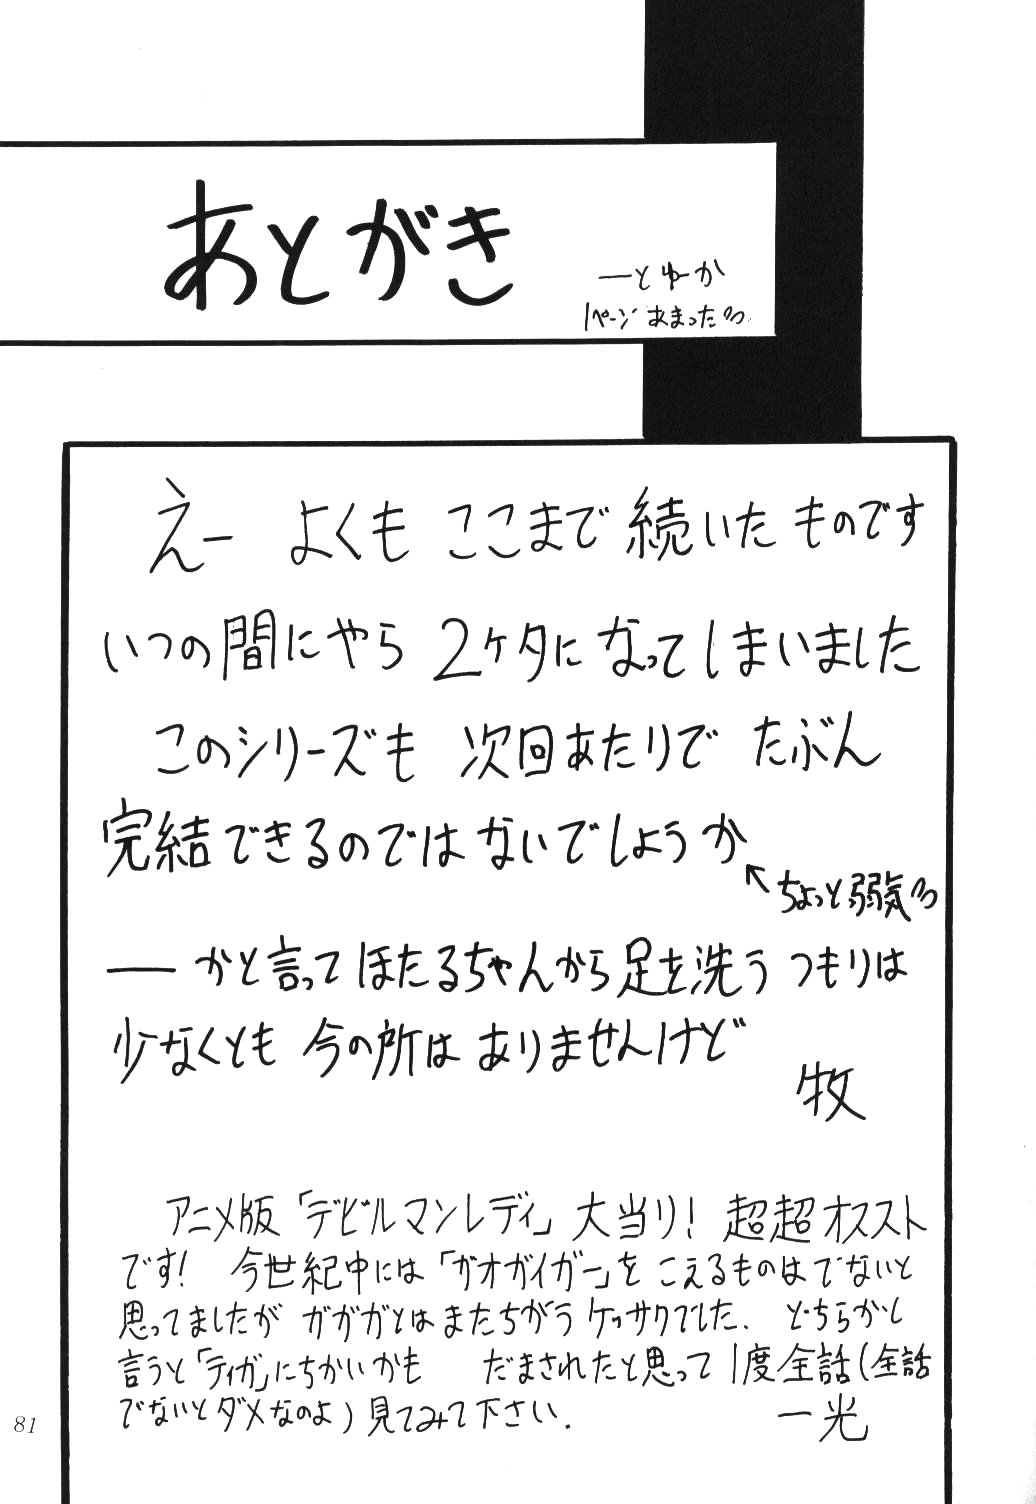 あとがき
―とゆーか
1ページあまったの
えー よくも ここまで 続いた ものです
いつの間にやら 2ケタに なってしまいました
このシリーズも 次回あたりで たぶん
完結できるのでは ないでしょうか
←ちょっと弱気
― かと言って ほたるちゃんから 足を洗う つもりは
少なくとも 今の所は ありませんけど
牧
アニメ版「デビルマンレディ」大当り! 超超オススト
です! 今世紀中には「ガオガイガー」を こえるものはでないと
思ってましたが ガガガとはまたちがう ケッサクでした. どちらかし
言うと「ティガ」にちかいかも だまされたと思って 1度全話(全話
でないとダメなのよ)見てみて下さい.
一光
81